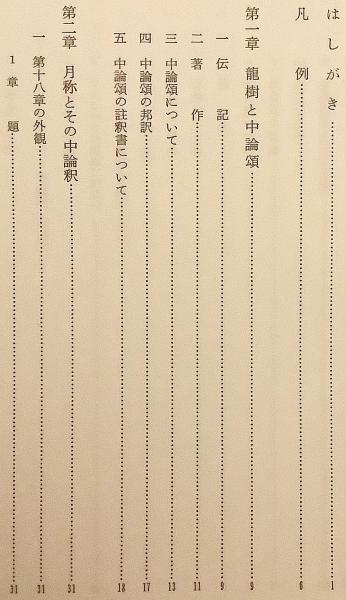 はしがき……………………1
凡例……………………6
第一章 龍樹と中論頌……………………9
一 伝記……………………9
二 著作……………………11
三 中論頌について……………………13
四 中論頌の邦訳……………………17
五 中論頌の註釈書について……………………18
第二章 月称とその中論釈……………………31
一 第十八章の外観……………………31
1 章題……………………31